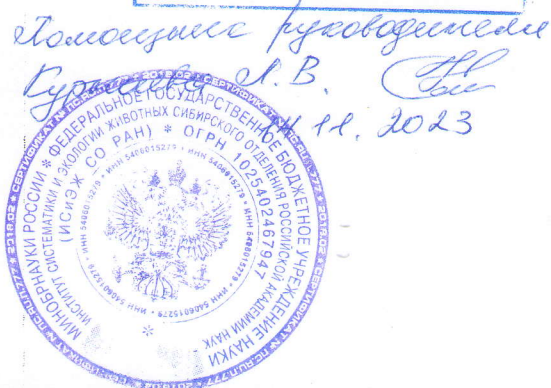 Помощник руководителя
Л.В.
14.11.2023
* МИНОБРНАУКИ РОССИИ * ФЕДЕРАЛЬНОЕ ГОСУДАРСТВЕННОЕ БЮДЖЕТНОЕ УЧРЕЖДЕНИЕ НАУКИ
ИНСТИТУТ СИСТЕМАТИКИ И ЭКОЛОГИИ ЖИВОТНЫХ СИБИРСКОГО ОТДЕЛЕНИЯ РОССИЙСКОЙ АКАДЕМИИ НАУК
(ИСиЭЖ СО РАН) * ОГРН 1025402467947 *
ИНН 5406015279 * ИНН 5406015279 * ИНН 5406015279 * ИНН 5406015279 * ИНН 5406015279